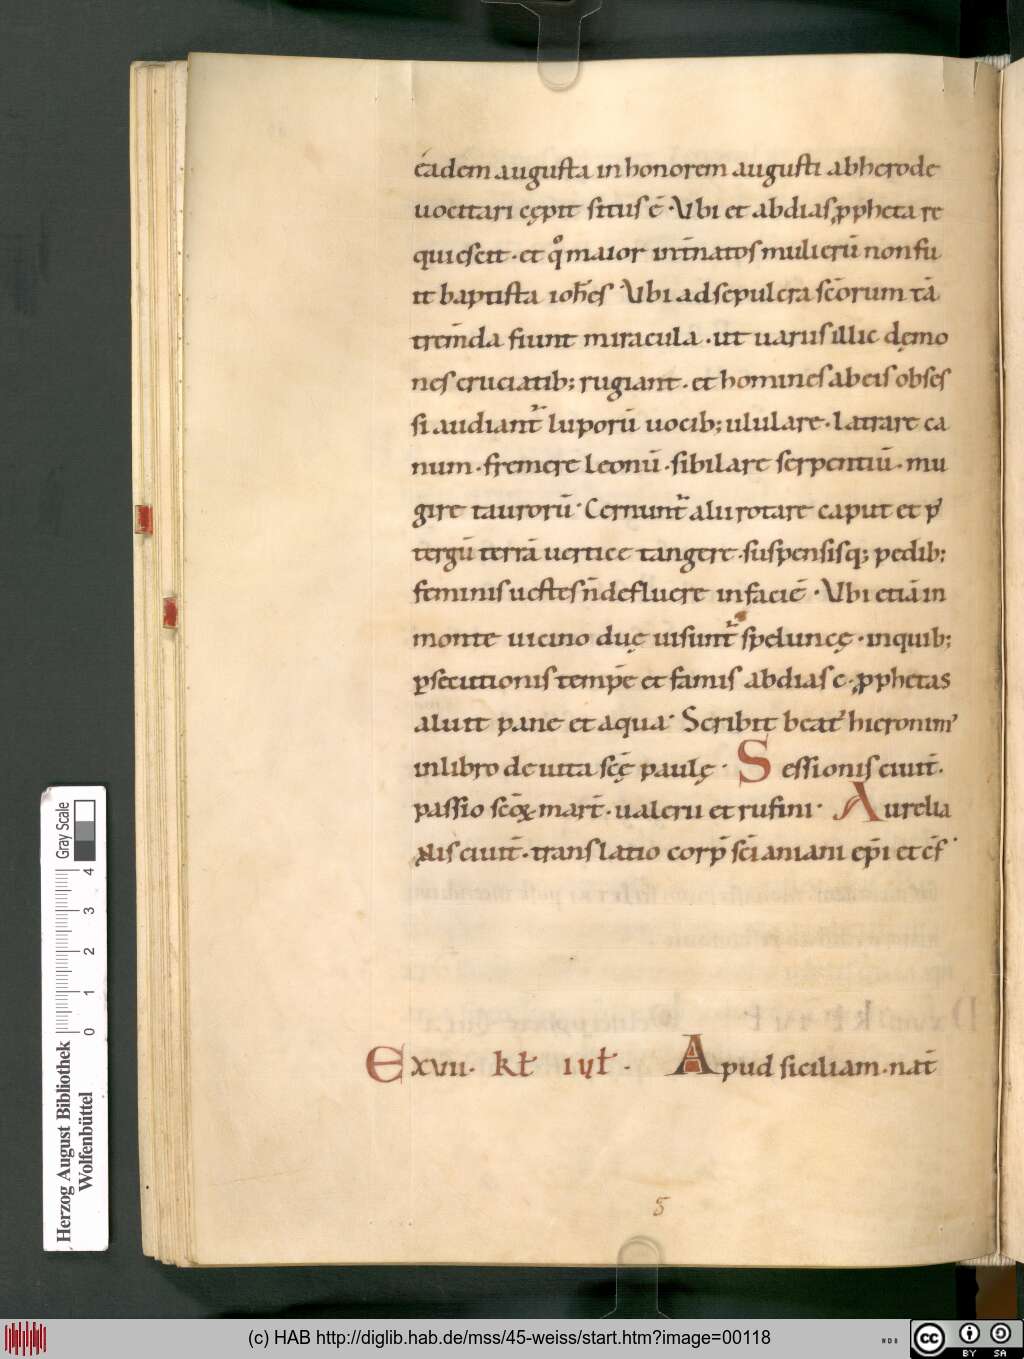 eadem augusta in honorem augusti abherode
uocitari cępit situs ē · Vbi et abdias ꝓpheta re
quiescit · et qͦ maior int̄ natos mulierū non fu
it baptista ioh̄es · Vbi ad sepulcra sc̄orum tā
trem̄da fiunt miracula · ut uariis illic dęmo
nes cruciatib; rugiant · et homines ab eis obses
si audiant᷑ luporū uocib; ululare · latrare ca
num · fremere leonū · sibilare serpentiū · mu
gire taurorū · Cernunt᷑ alii rotare caput et p᷒
tergū terrā uertice tangere · suspensisq; pedib;
feminis uestes n̄ defluere in faciē · Vbi etiā in
monte uicino duę uisunt᷑ speluncę · in quib;
ꝑsecutionis tempr̄e et famis abdias c · ꝓphetas
aluit pane et aqua · Scribit beat᷒ hieronim᷒
in libro de uita sc̄ę paulę · Sessionis ciuit̄ ·
passio sc̄oꝝ mart̄ · ualerii et rufini · Aurelia
nis ciuit̄ · translatio corp̄ sc̄i aniani ep̄i et cf̄ ·
E xvii · kł iuł · Apud siciliam · nat̄
5
Herzog August Bibliothek
Wolfenbüttel
0 1 2 3 4
Gray Scale
(c) HAB http://diglib.hab.de/mss/45-weiss/start.htm?image=00118
WDB
cc BY SA